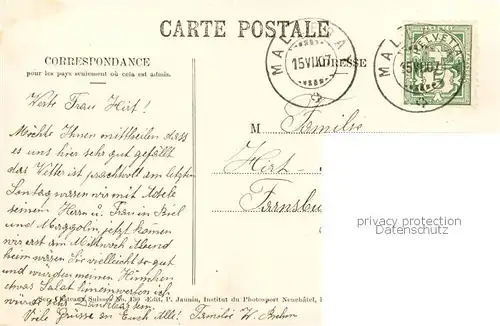 CARTE POSTALE
CORRESPONDANCE
pour les pays seulement où cela est admis.
ADRESSE
MALLERAY
15 VII 07
HELVETIA
Werte Frau Hirt!
Möchte Ihnen mittheilen dass
es uns hier sehr gut gefällt
das Wetter ist prachtvoll am letzten
Sontag waren wir mit Adele
seinem Herrn u. Frau in Biel
und Maggolin, jetzt kamen
wir erst am Mittwoch Abend
heim wären Sie vielleicht so gut
und würden meinen Hünchen
etwas Salat hineinwerfen ich
würde sehr dankbar sein.
Viele Grüsse an Euch Alle! Familie W. Brehm
M Familie
Hirt-
Farnsbu
Suisses No. 130 Edit. P. Jaunin, Institut du Photosport Neuchâtel,
privacy protection
www.oldthing.de